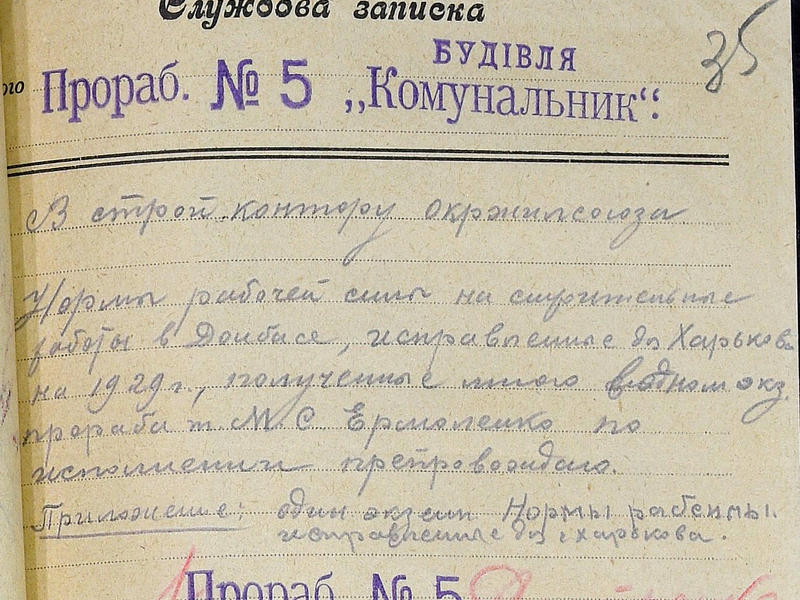 Службова записка
35
ого
БУДІВЛЯ
Прораб. № 5 „Комунальник“:
В строй.контору окржилсоюза
Нормы рабочей силы на строительные
работы в Донбасе, исправленные дл Харькова
на 1929 г., полученные мною в одном экз.
прораба т. М. С Ермоленко по
исполнении препровождаю.
Приложение: один экземп Нормы рабсилы.
исправленные дл г Харькова.
Прораб. № 5